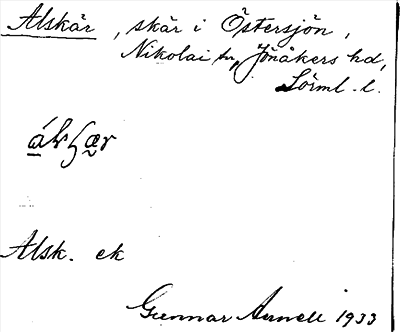 Alskär, skär i Östersjön,
Nikolai sn, Jönåkers hd,
Sörml. l.
Alsk. ek
Gunnar Arnell 1933